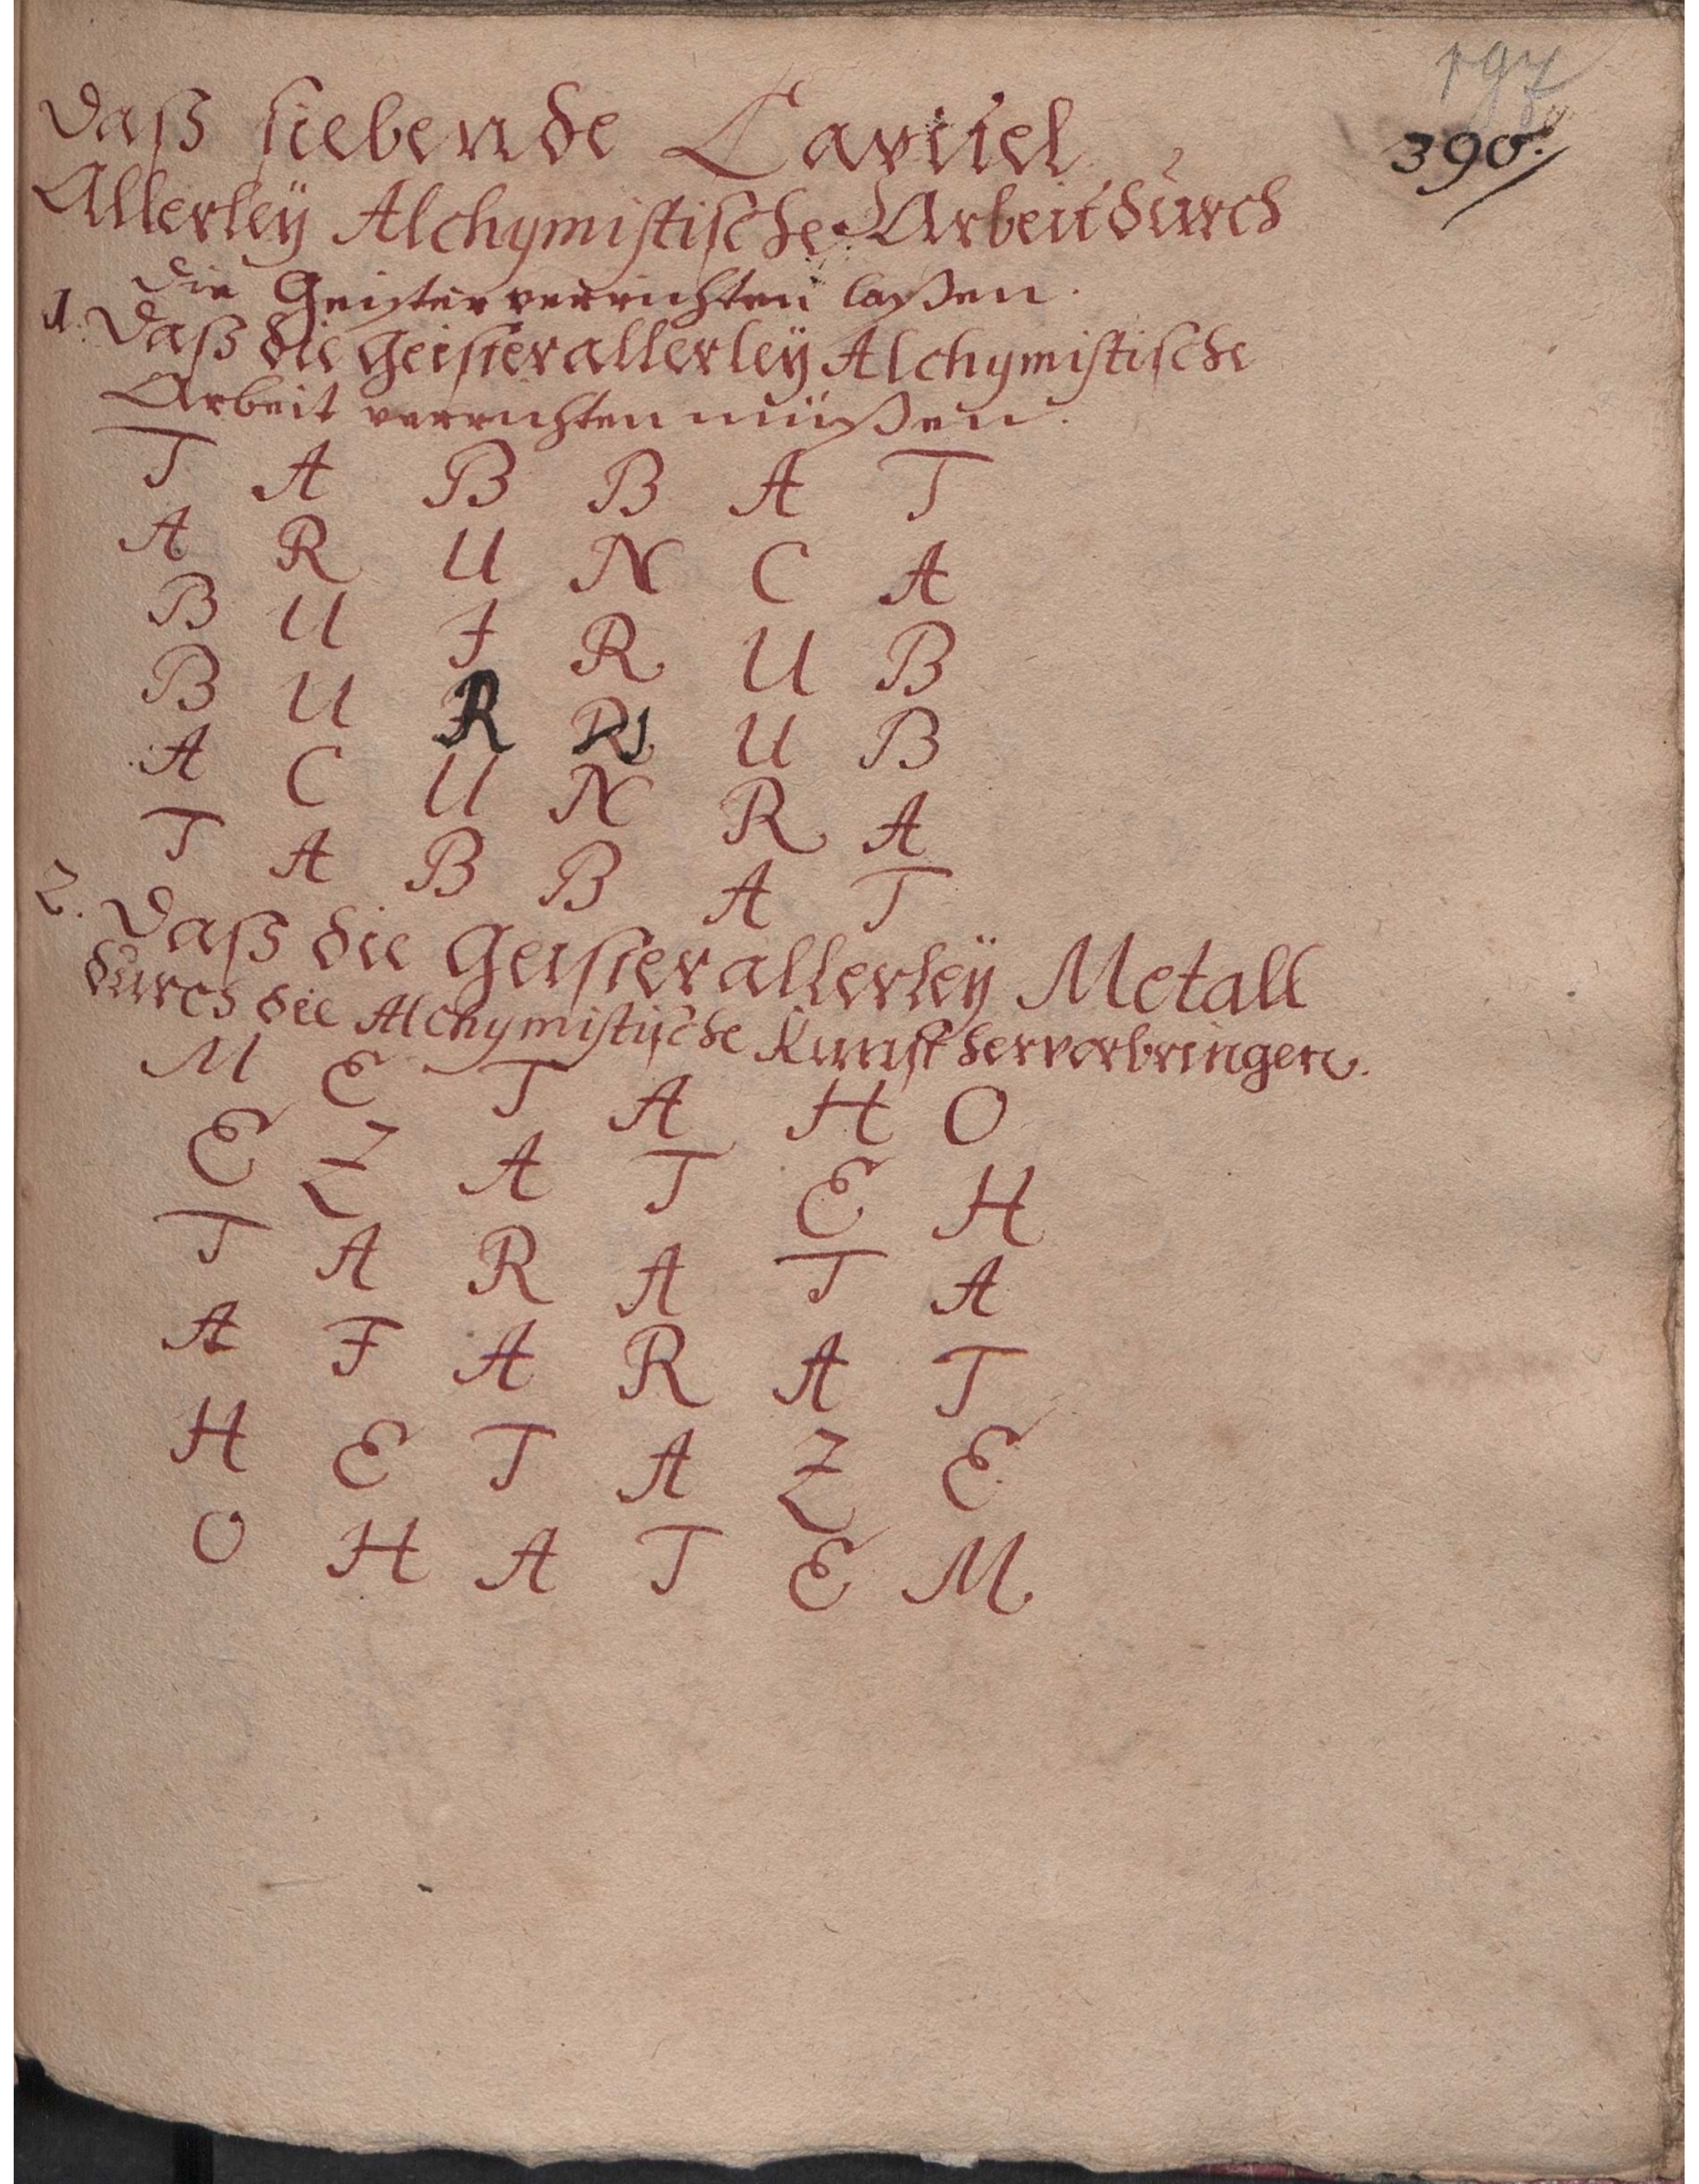 390.
Daß siebende Capitel
Allerleÿ Alchymistische Arbeit durch
die Geister verrichten laßen.
1. Daß die Geister allerleÿ Alchymistische
Arbeit verrichten müßen.
T A B B A T
A R U N C A
B U I R U B
B U R I U B
A C U N R A
T A B B A T
2. Daß die Geister allerleÿ Metall
durch die Alchymistische Kunst hervorbringen.
M E T A H O
E Z A T E H
T A R A T A
A F A R A T
H E T A Z E
O H A T E M